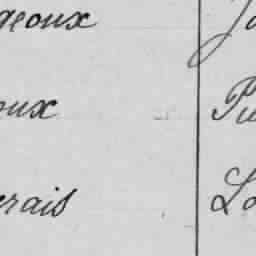 geoux Jo
oux Pie
erais Lo